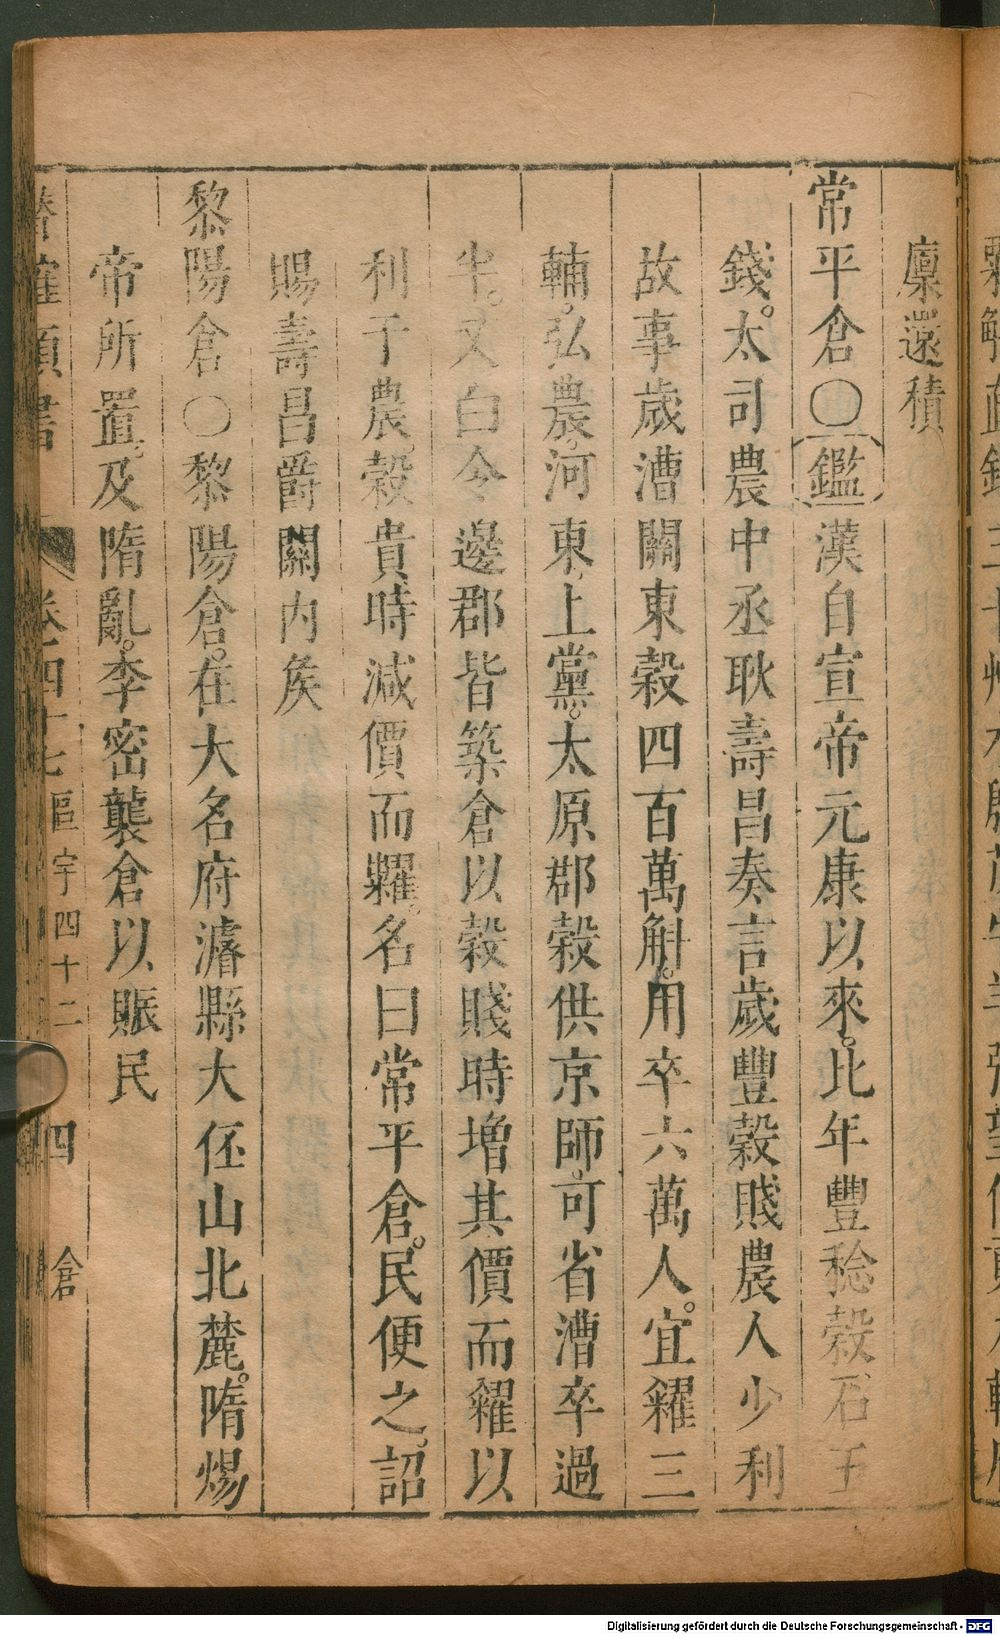 廩還積
常平倉○鑑漢自宣帝元康以來。比年豐稔穀石五
錢。太司農中丞耿壽昌奏言歲豐穀賤農人少利
故事歲漕關東穀四百萬斛。用卒六萬人。宜糴三
輔。弘農。河東。上黨。太原郡穀供京師。可省漕卒過
半。又白令邊郡皆築倉以穀賤時增其價而糴以
利于農。穀貴時減價而糶。名曰常平倉。民便之。詔
賜壽昌爵關內矦
黎陽倉○黎陽倉。在大名府濬縣大伾山北麓。隋煬
帝所置。及隋亂。李密襲倉以賑民
類書 卷四十七 區宇四十二 四 倉
Digitalisierung gefördert durch die Deutsche Forschungsgemeinschaft - DFG